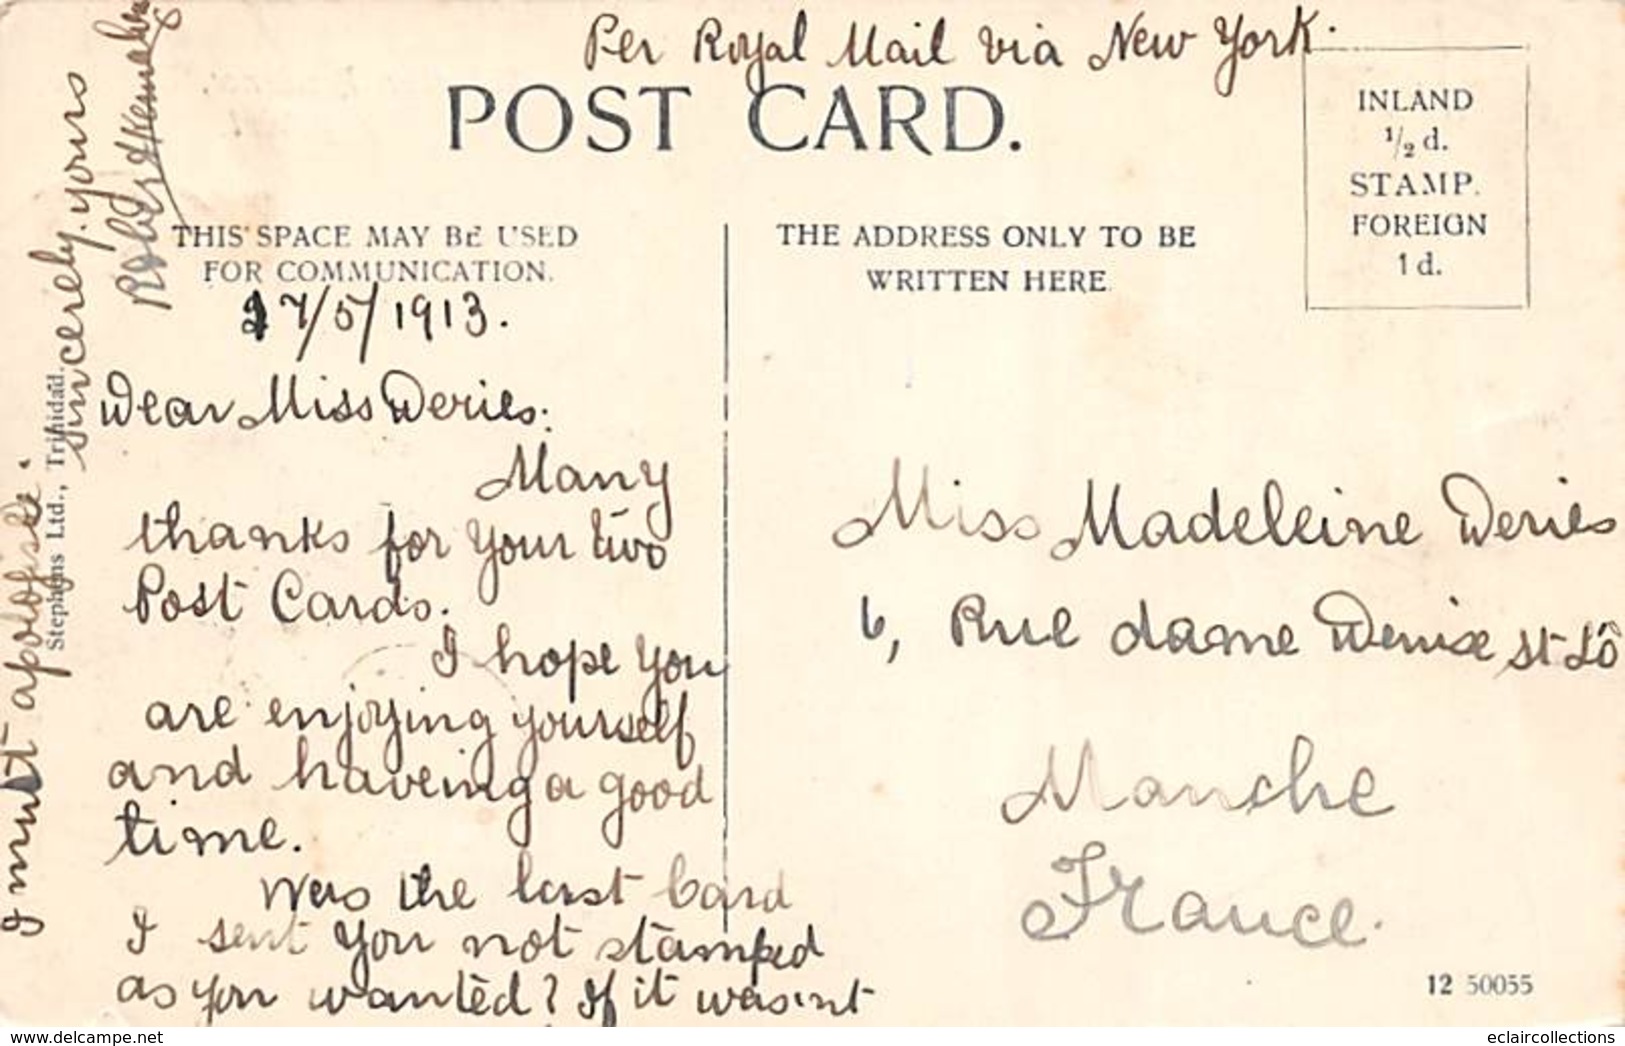 Per Royal Mail via New York.
POST CARD.
INLAND
1/2 d.
STAMP.
FOREIGN
1 d.
THIS SPACE MAY BE USED
FOR COMMUNICATION.
THE ADDRESS ONLY TO BE
WRITTEN HERE
27/5/1913.
Dear Miss Deries.
Many
thanks for your two
Post Cards.
I hope you
are enjoying yourself
and haveing a good
time.
Was the last Card
I sent you not stamped
as you wanted? If it was'nt
I must apologise.
sincerely yours
Robert
Stephens Ltd., Trinidad.
Miss Madeleine Deries
6, Rue dame Denise St Lô
Manche
France.
12 50055
eclaircollections